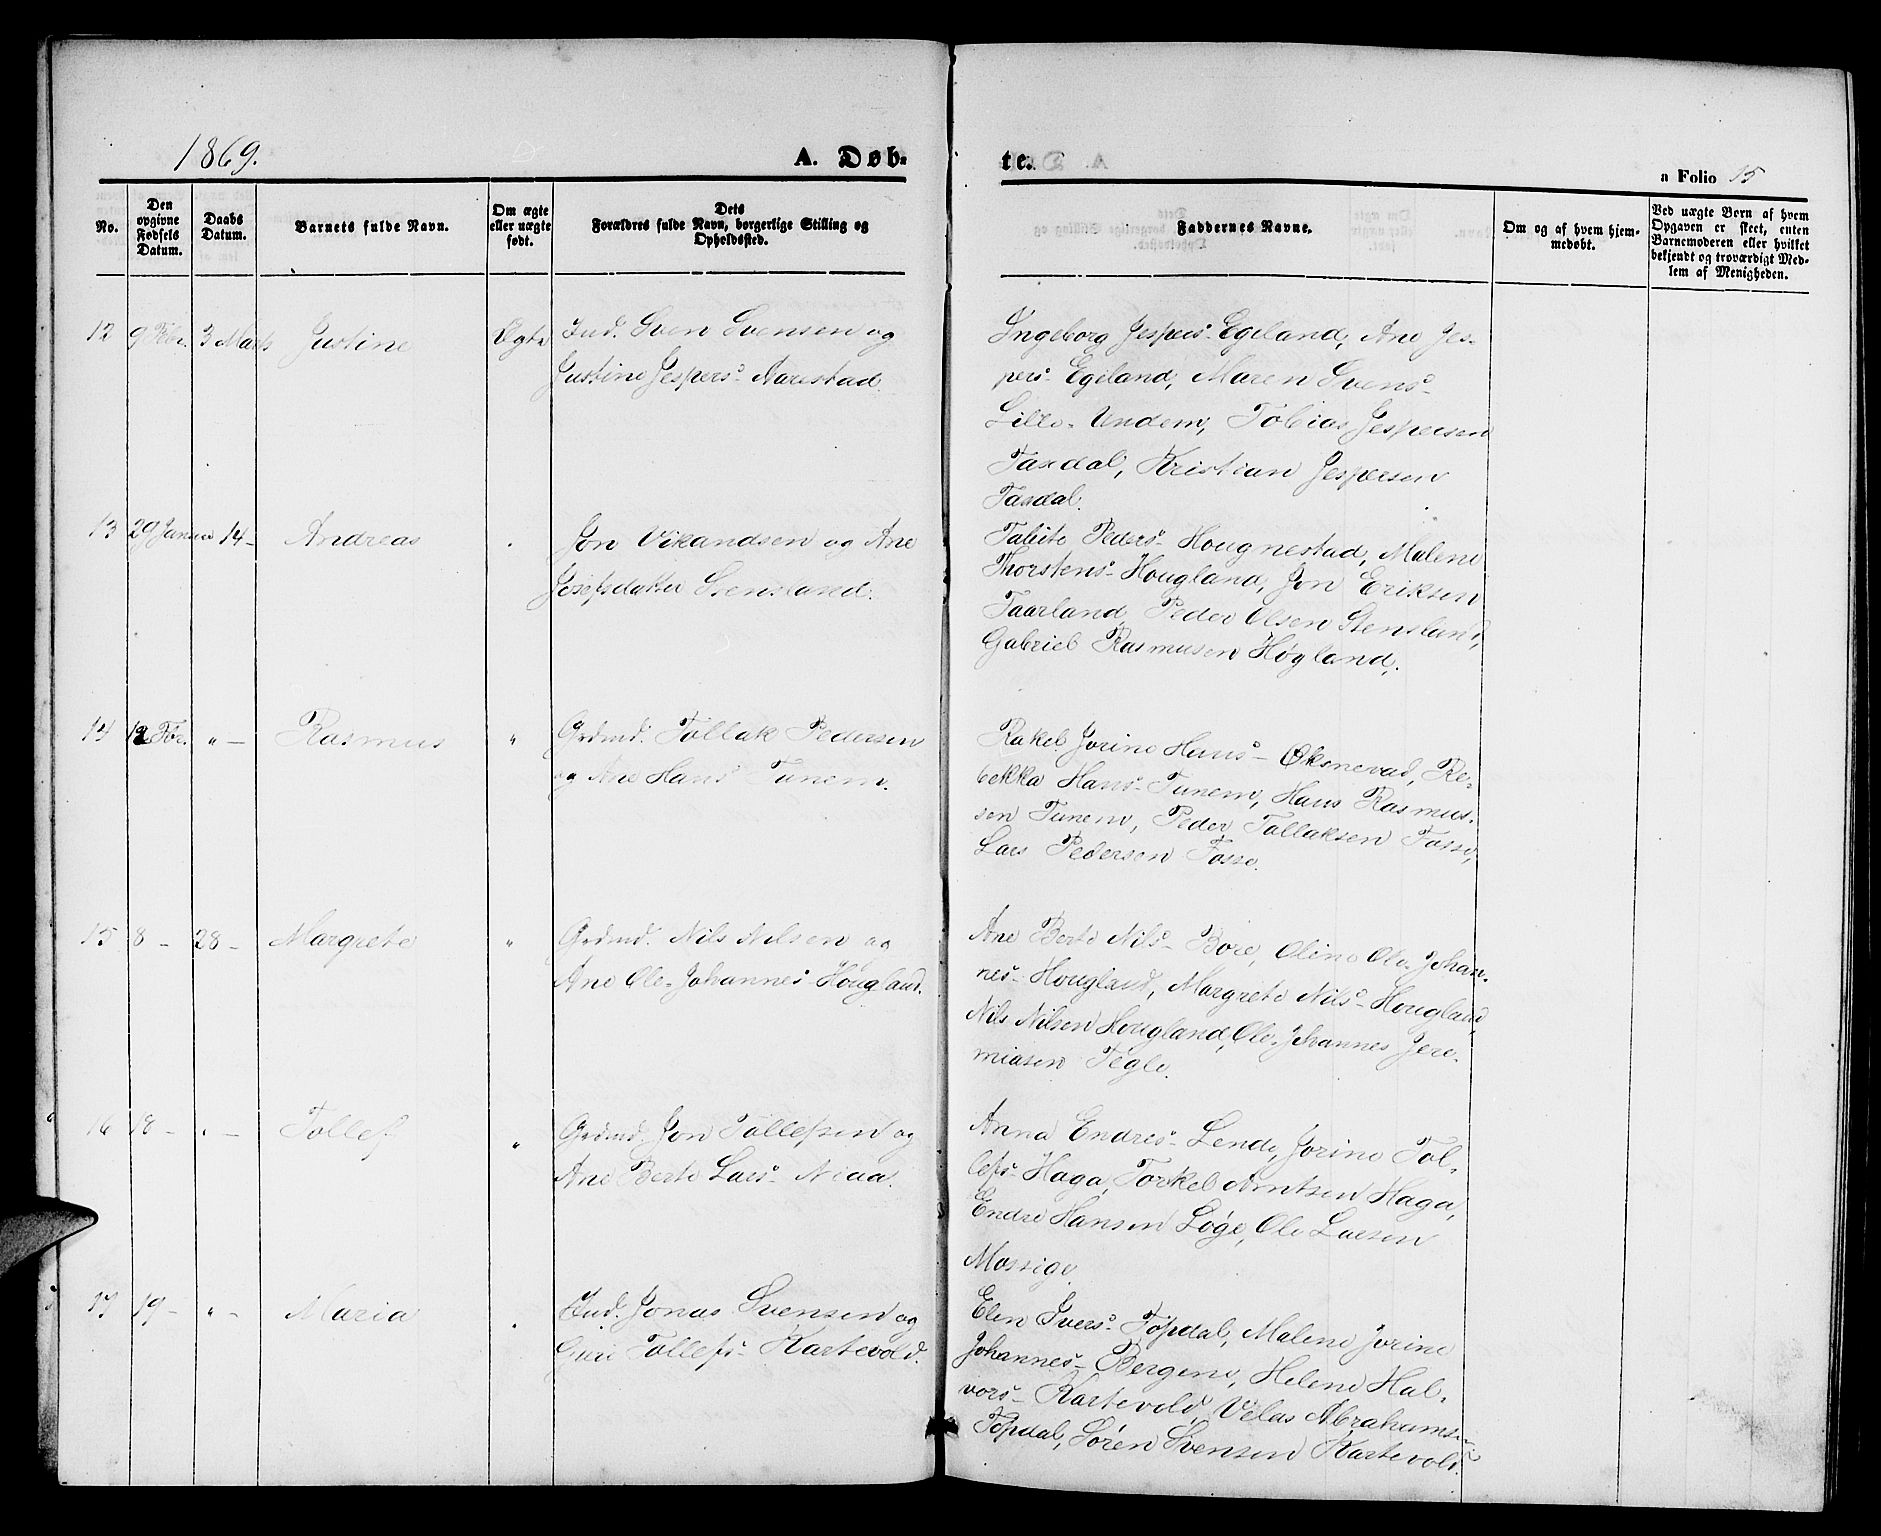 1869.
A. Døb-
te.
a Folio 15
No.
Den opgivne Fødsels Datum.
Daabs Datum.
Barnets fulde Navn.
Om ægte eller uægte født.
Dets Forældres fulde Navn, borgerlige Stilling og Opholdssted.
Faddernes Navne.
Om og af hvem hjem-
medøbt.
Ved uægte Børn af hvem
Opgaven er skeet, enten
Barnemoderen eller hvilket
bekjendt og troværdigt Med-
lem af Menigheden.
12 9 Febr. 3 Marts Justine Ægte Ind. Sven Svensen og
Justine Jespers- Aarestad.
Ingeborg Jespers- Egeland, Ane Jes-
pers- Egeland, Maren Svens-
Lille- Undem, Tobias Jespersen
Taxdal, Kristian Jespersen
Taxdal.
13 29 Januar 14 - Andreas Jon Vikandsen og Ane
Josefsdatter Stensland.
Tabite Peders- Hougnestad, Malene
Thorstens- Hougland, Jon Eriksen
Taarland, Peder Olsen Stensland,
Gabriel Rasmusen Høgland.
14 12 Feb. " - Rasmus " Grdmd. Tollak Pedersen
og Ane Hans- Tunem.
Rakel Jorine Hans- Øksnevad, Re-
bekka Hans- Tunem, Hans Rasmus-
sen Tunem, Peder Tollaksen Fosse,
Lars Pedersen Fosse.
15 8 - 28 - Margrete " Grdmd. Nils Nilsen og
Ane Ole-Johannes- Hougland.
Ane Berte Nils- Bore, Oline Ole-Johan-
nes- Hougland, Margrete Nils- Hougland
Nils Nilsen Hougland, Ole-Johannes Jere-
miasen Tegle.
16 18 - " - Tollef " Grdmd. Jon Tollefsen og
Ane Berte Lars- Niaa.
Anna Endres- Lende, Jorine Tol-
lefs- Haga, Torkel Arntsen Haga,
Endre Hansen Løge, Ole Larsen
Mossige.
17 19 - " - Maria " Ind. Jonas Svensen og
Guri Tollefs- Kartevold.
Elen Ivers- Topdal, Malene Jorine
Johannes- Bergene, Helene Hal-
vors- Kartevold, Velas Abrahamsen
Topdal, Søren Svensen Kartevold.